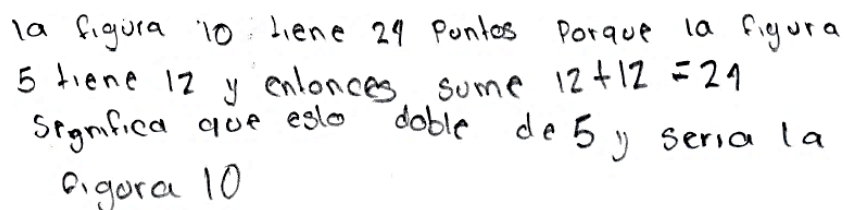 la figura 10 tiene 24 Puntos Porque la figura
5 tiene 12 y entonces sume 12+12 = 24
Segnifica que eslo doble de 5 y seria la
figura 10